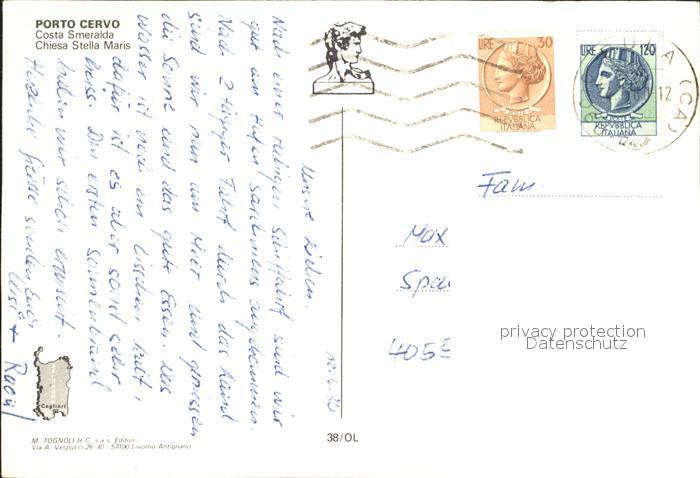 PORTO CERVO
Costa Smeralda
Chiesa Stella Maris
Unsere Lieben.
Nach einer ruhigen Schiffahrt sind wir
gut am Hafen Sardiniens angekommen.
Nach 2 tägiger Fahrt durch das Land
sind wir nun am Meer und geniessen
die Sonne und das gute Essen. Das
Wasser ist noch ein bisschen kalt,
dafür ist es aber sonst sehr
heiss. Den ersten Sonnenbrand
haben wir schon erwischt.
Herzliche Grüsse senden Euch
+
LIRE 30
REPVBBLICA
ITALIANA
LIRE 120
REPVBBLICA
ITALIANA
12
(CA)
Fam.
Max
Spa
405
privacy protection
Datenschutz
Cagliari
M. TOGNOLI & C. s.a.s. Editori
Via A. Vespucci 26-30 - 57100 Livorno Antignano
38/OL